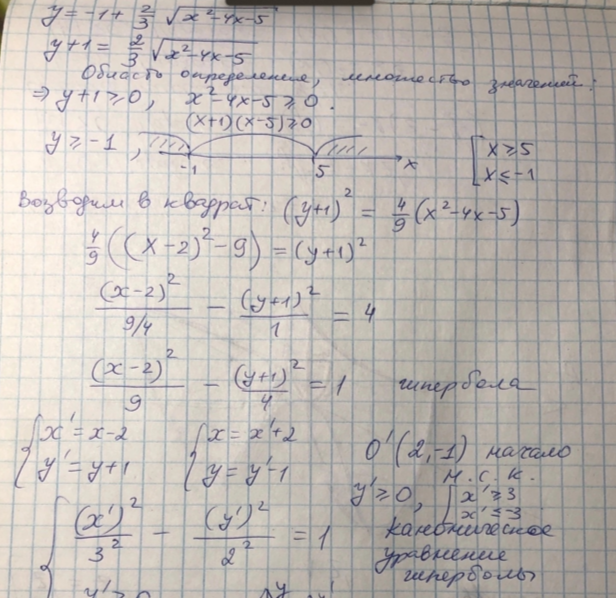 y = -1 + 2/3 √(x²-4x-5)
y+1 = 2/3 √(x²-4x-5)
Область определения, множество значений:
⇒ y+1 ≥ 0, x²-4x-5 ≥ 0.
(x+1)(x-5) ≥ 0
y ≥ -1, -1 5 x [x ≥ 5
x ≤ -1
Возводим в квадрат: (y+1)² = 4/9 (x²-4x-5)
4/9 ((x-2)²-9) = (y+1)²
(x-2)²/(9/4) - (y+1)²/1 = 4
(x-2)²/9 - (y+1)²/4 = 1 гипербола
{x' = x-2 {x = x'+2 O'(2,-1) начало
y' = y+1 y = y'-1 н.с.к.
y' ≥ 0, [x' ≥ 3
x' ≤ -3
{(x')²/3² - (y')²/2² = 1 каноническое
уравнение
гиперболы